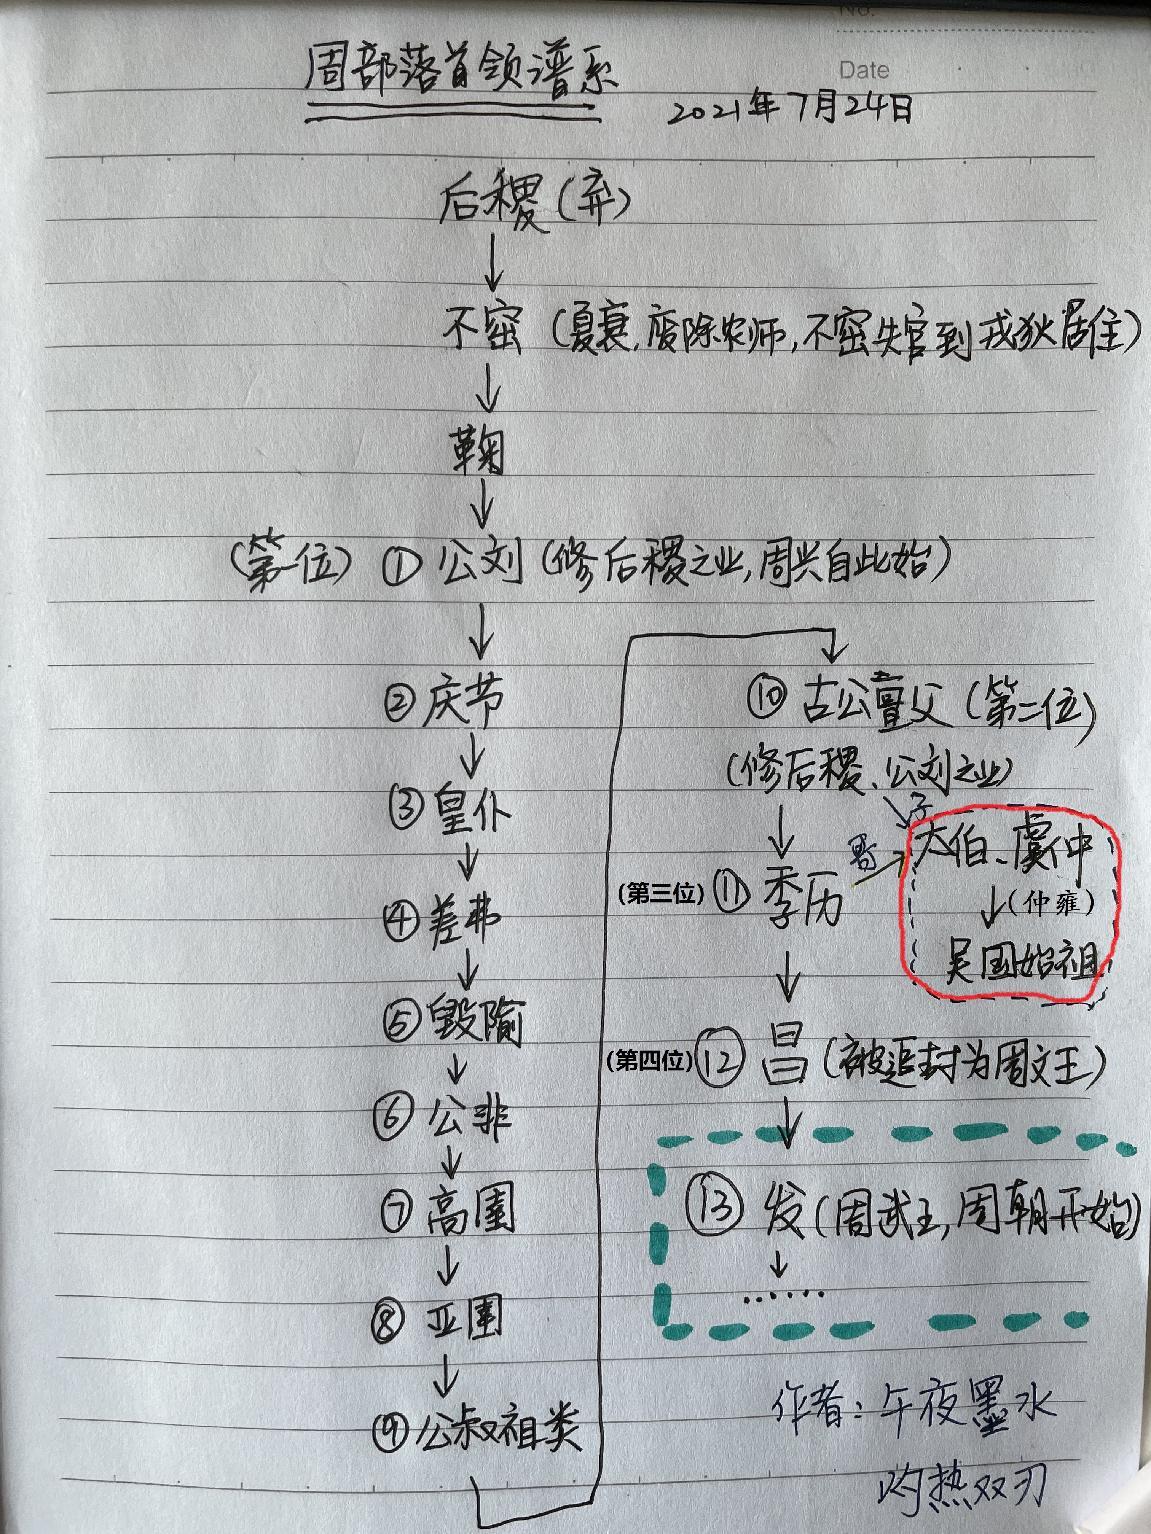 No.
Date
周部落首领谱系
2021年7月24日
后稷(弃)
↓
不窋(夏衰,废除农师,不窋失官到戎狄居住)
↓
鞠
↓
(第一位)①公刘(修后稷之业,周兴自此始)
↓
②庆节
↓
③皇仆
↓
④差弗
↓
⑤毁隃
↓
⑥公非
↓
⑦高圉
↓
⑧亚圉
↓
⑨公叔祖类
⑩古公亶父(第二位)
(修后稷、公刘之业)
↓ 子
(第三位)⑪季历
哥
太伯、虞仲
↓(仲雍)
吴国始祖
↓
(第四位)⑫昌(被追封为周文王)
↓
⑬发(周武王,周朝开始)
↓
······
作者:午夜墨水
灼热双刃